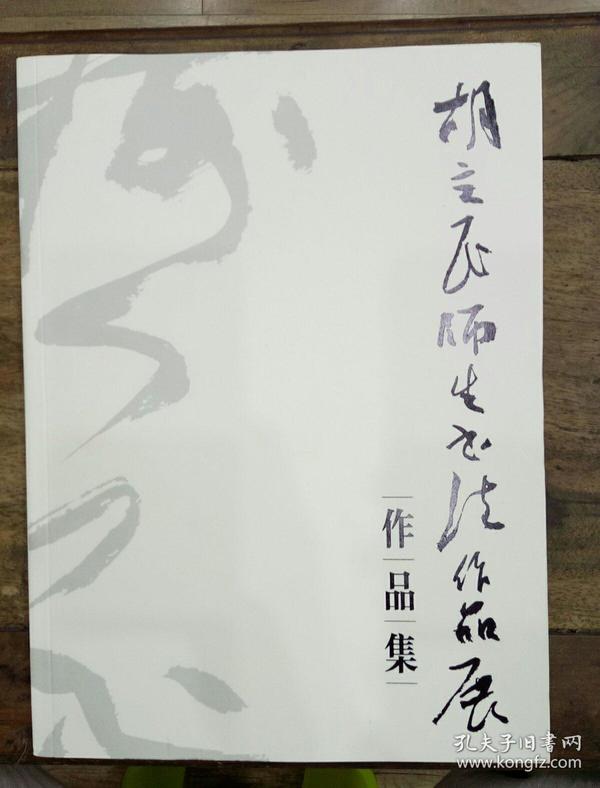 胡立民师生书法作品展
作品集
孔夫子旧書网
www.kongfz.com